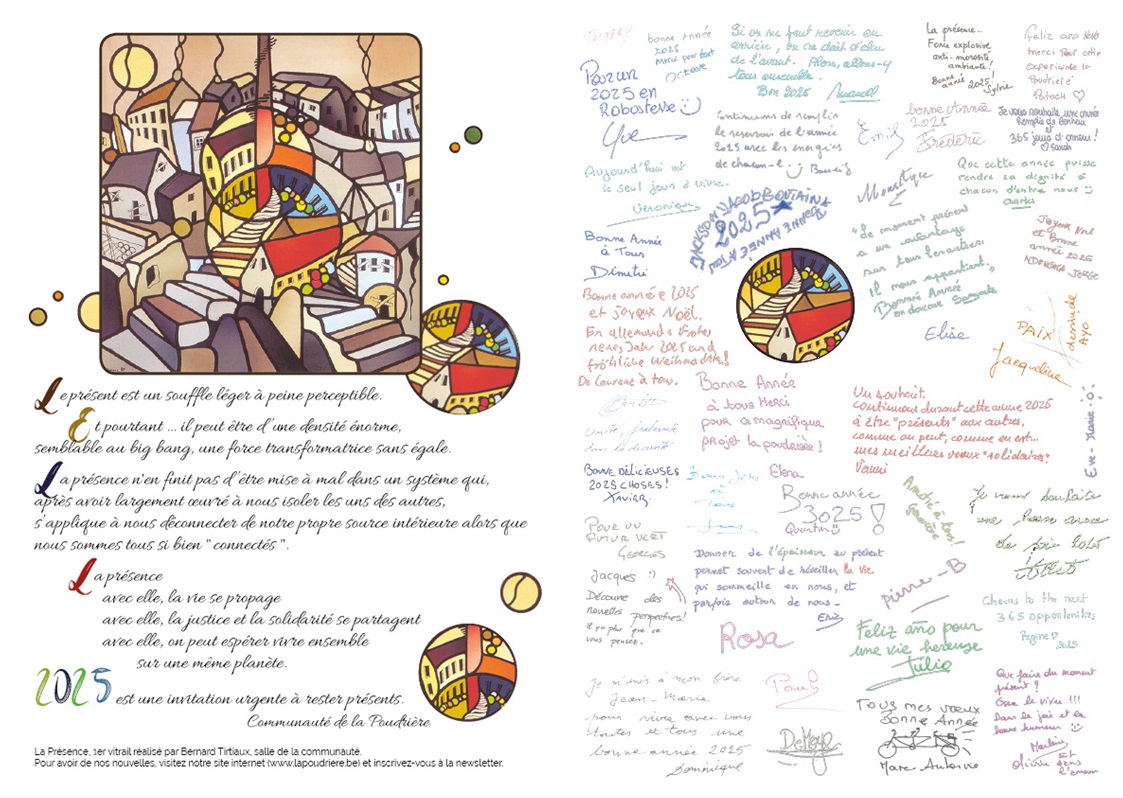 Le présent est un souffle léger à peine perceptible.
Et pourtant ... il peut être d'une densité énorme,
semblable au big bang, une force transformatrice sans égale.
La présence n'en finit pas d'être mise à mal dans un système qui,
après avoir largement œuvré à nous isoler les uns des autres,
s'applique à nous déconnecter de notre propre source intérieure alors que
nous sommes tous si bien " connectés ".
La présence
avec elle, la vie se propage
avec elle, la justice et la solidarité se partagent
avec elle, on peut espérer vivre ensemble
sur une même planète.
2025 est une invitation urgente à rester présents.
Communauté de la Poudrière
La Présence, 1er vitrail réalisé par Bernard Tirtiaux, salle de la communauté.
Pour avoir de nos nouvelles, visitez notre site internet (www.lapoudriere.be) et inscrivez-vous à la newsletter.
bonne Année
2025
Merci pour tout
Octave
Pour un
2025 en
Robustesse
Si on ne peut revenir en
arrière, on se doit d'aller
de l'avant. Alors, allons-y
tous ensemble.
Bon 2025
La présence...
Force explosive
anti-morosité
ambiante!
Bonne
année 2025!
Sylvie
Feliz ano novo
merci pour cette
expérience la
Poudrière
Patoch
Continuons de remplir
le réservoir de l'année
2025 avec les énergies
de chacun-e
Emil
bonne Année
2025
Frédéric
Je vous souhaite une année
Remplie de Bonheur
et
365 jours d'amour!
Sarah
Aujourd'hui est
le seul jour à vivre.
Véronique
JACKSON JACOB BONTAINA
2025
BONNE ANNEE A TOUS
Monique
Que cette année puisse
rendre sa dignité à
chacun d'entre nous
Charles
Bonne Année
à Tous
Dimitri
"Le moment présent
a un avantage
sur tous les autres:
Il nous appartient."
Bonne Année
en douceur
Joyeux Noël
et Bonne
année 2025
Bonne année 2025
et Joyeux Noël.
En allemand: Frohes
neues Jahr 2025 and
fröhliche Weihnachten!
De Laurence à tous.
Elise
PAIX
dessin de
AYO
Jacqueline
Bonne Année
à tous Merci
pour ce magnifique
projet la poudrière!
Elena
Un souhait.
Continuons durant cette année 2025
à être "présents" aux autres,
comme on peut, comme on est...
mes meilleurs vœux "solidaires".
Unité, fraternité
dans la diversité
BONNE DÉLICIEUSES
2025 CHOSES!
XAVIER.
Bonne année
3025!
Quentin
André à
tous!
Je vous souhaite
une bonne année
de paix 2025
POUR UN
FUTUR VERT
GEORGES
Donner de l'épaisseur au présent
permet souvent de réveiller la vie
qui sommeille en nous, et
parfois autour de nous...
Jacques :)
Découvre des
nouvelles perspectives!
Il y a plus que ce
vous pensez.
pierre-B
Cheers to the next
365 opportunities
Regine
2025
Rosa
Feliz año pour
une vie heureuse
Julio
Je m'unis à mon frère
Jean-Marie
pour vivre avec vous
toutes et tous une
bonne année 2025
Dominique
Paul
Tous mes vœux
Bonne Année
Marc Antoine
Que faire du moment
présent?
Que le vivre!!!
Dans la joie et la
bonne humeur